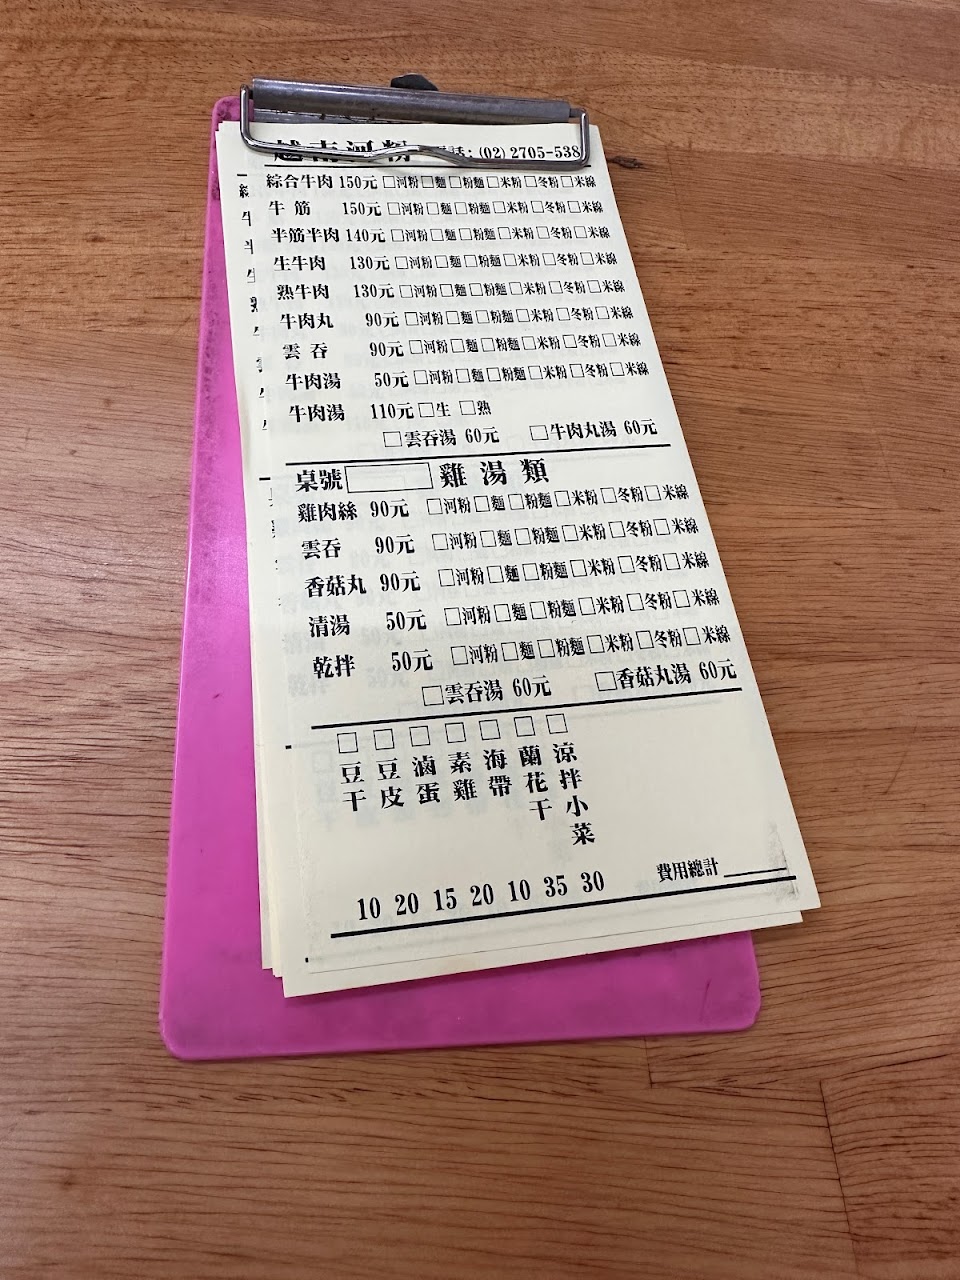 越南河粉 電話：(02) 2705-538
綜合牛肉 150元 □河粉□麵□粉麵□米粉□冬粉□米線
牛筋 150元 □河粉□麵□粉麵□米粉□冬粉□米線
半筋半肉 140元 □河粉□麵□粉麵□米粉□冬粉□米線
生牛肉 130元 □河粉□麵□粉麵□米粉□冬粉□米線
熟牛肉 130元 □河粉□麵□粉麵□米粉□冬粉□米線
牛肉丸 90元 □河粉□麵□粉麵□米粉□冬粉□米線
雲吞 90元 □河粉□麵□粉麵□米粉□冬粉□米線
牛肉湯 50元 □河粉□麵□粉麵□米粉□冬粉□米線
牛肉湯 110元 □生 □熟
□雲吞湯 60元 □牛肉丸湯 60元
桌號 雞湯類
雞肉絲 90元 □河粉□麵□粉麵□米粉□冬粉□米線
雲吞 90元 □河粉□麵□粉麵□米粉□冬粉□米線
香菇丸 90元 □河粉□麵□粉麵□米粉□冬粉□米線
清湯 50元 □河粉□麵□粉麵□米粉□冬粉□米線
乾拌 50元 □河粉□麵□粉麵□米粉□冬粉□米線
□雲吞湯 60元 □香菇丸湯 60元
□豆干 10
□豆皮 20
□滷蛋 15
□素雞 20
□海帶 10
□蘭花干 35
□涼拌小菜 30
費用總計